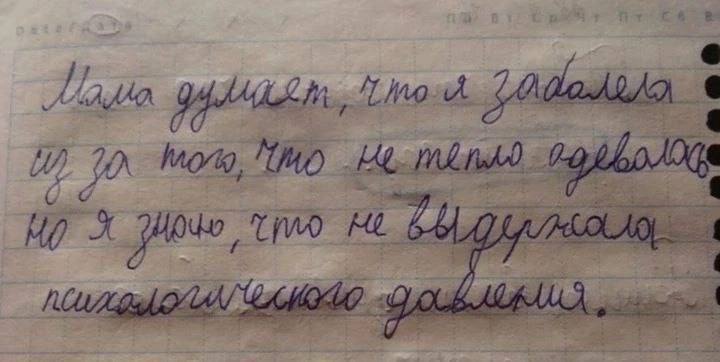 Дата
Пн Вт Ср Чт Пт Сб В
Мама думает, что я заболела
из за того, что не тепло одевалась
но я знаю, что не выдержала
психологического давления.